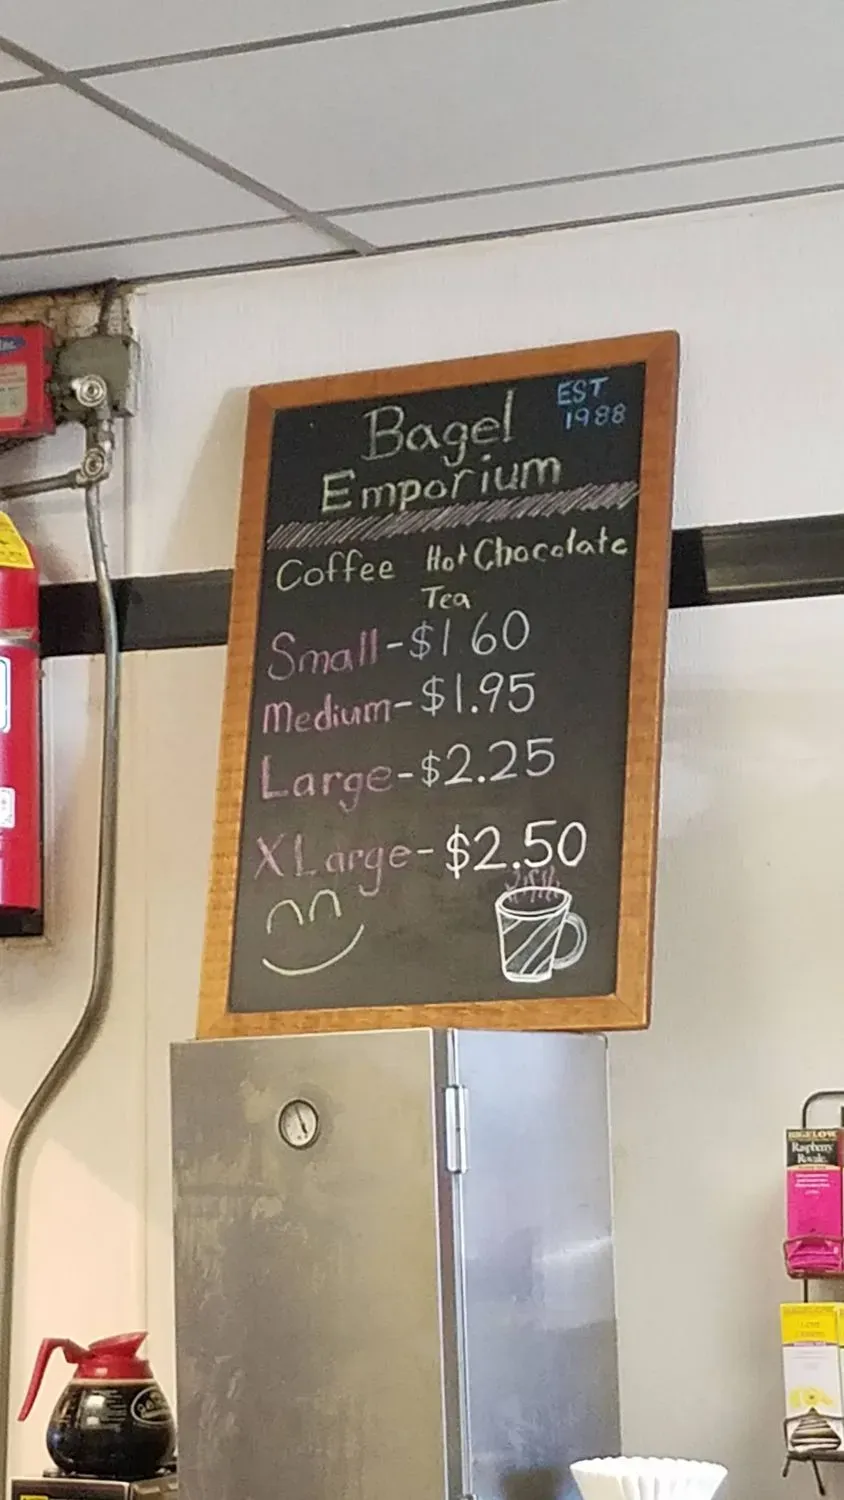 Bagel
Emporium
EST
1988
Coffee Hot Chocolate
Tea
Small-$1 60
Medium-$1.95
Large-$2.25
XLarge-$2.50
BIGELOW
Raspberry
Royale